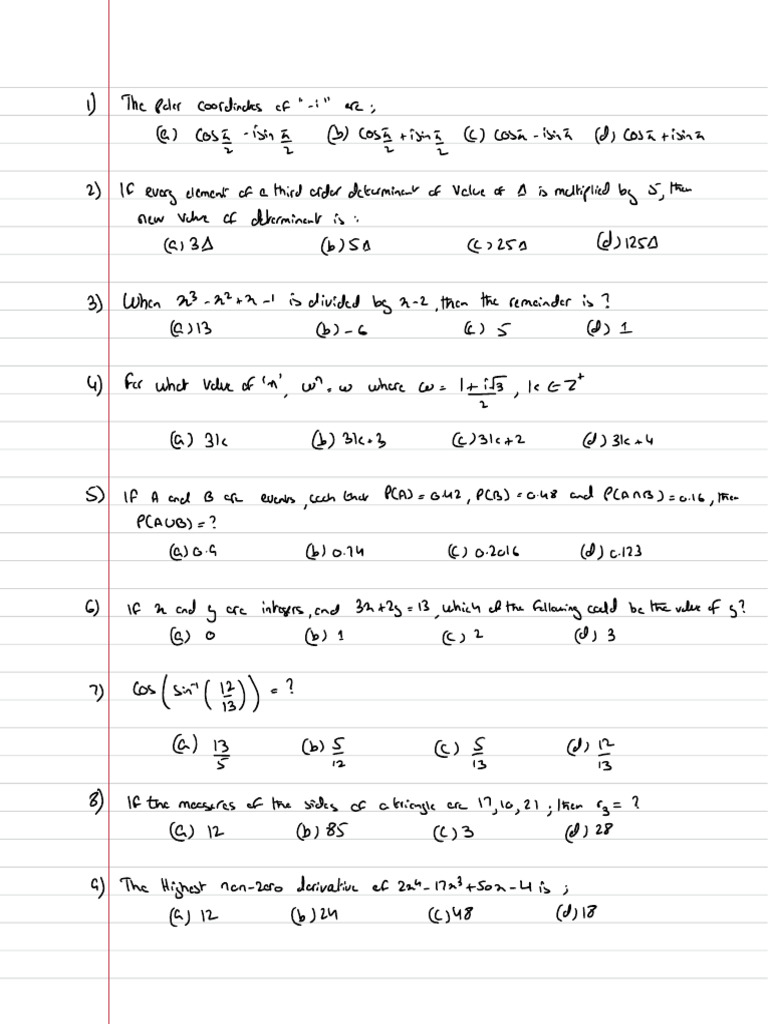 1) The Polar coordinates of "-i" are;
(a) cos π/2 - isin π/2 (b) cos π/2 + isin π/2 (c) cosπ - isinπ (d) cosπ + isinπ
2) If every element of a third order determinant of value of Δ is multiplied by 5, then
new value of determinant is :
(a) 3Δ (b) 5Δ (c) 25Δ (d) 125Δ
3) When x³ - x² + x - 1 is divided by x-2, then the remainder is ?
(a) 13 (b) -6 (c) 5 (d) 1
4) For what value of 'n', ωⁿ = ω where ω = (1 + i√3)/2, k ∈ Z⁺
(a) 3k (b) 3k+3 (c) 3k+2 (d) 3k+4
5) If A and B are events, such that P(A) = 0.42, P(B) = 0.48 and P(A∩B) = 0.16, then
P(A∪B) = ?
(a) 0.9 (b) 0.74 (c) 0.2016 (d) 0.123
6) If x and y are integers, and 3x+2y = 13, which of the following could be the value of y?
(a) 0 (b) 1 (c) 2 (d) 3
7) cos(sin⁻¹(12/13)) = ?
(a) 13/5 (b) 5/12 (c) 5/13 (d) 12/13
8) If the measures of the sides of a triangle are 17, 10, 21 ; then r₃ = ?
(a) 12 (b) 85 (c) 3 (d) 28
9) The Highest non-zero derivative of 2x⁴ - 17x³ + 50x - 4 is ;
(a) 12 (b) 24 (c) 48 (d) 18